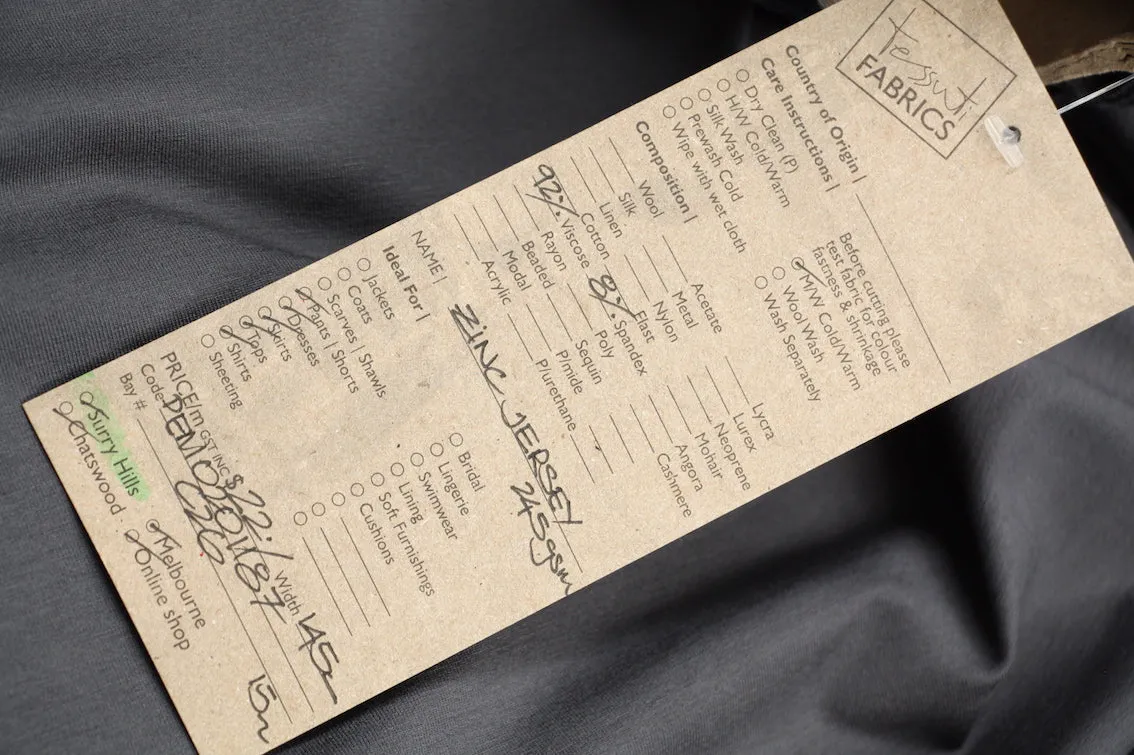 Tessuti
FABRICS
Country of Origin |
Care Instructions |
Dry Clean (P)
H/W Cold/Warm
Silk Wash
Prewash Cold
Wipe with wet cloth
Before cutting please
test fabric for colour
fastness & shrinkage
M/W Cold/Warm
Wool Wash
Wash Separately
Composition |
Wool Acetate Lycra
Silk Metal Lurex
Linen Nylon Neoprene
Cotton Elast Mohair
92% Viscose 8% Spandex Angora
Rayon Poly Cashmere
Beaded Sequin
Modal P/mide
Acrylic P/urethane
NAME | ZINC JERSEY 245gsm
Ideal For |
Jackets
Coats
Scarves | Shawls
Pants | Shorts
Dresses
Skirts
Tops
Shirts
Sheeting
Bridal
Lingerie
Swimwear
Lining
Soft Furnishings
Cushions
PRICE/m GST INC $22 Width 145
Code
Bay # C26
15m
Surry Hills Melbourne
Chatswood Online shop